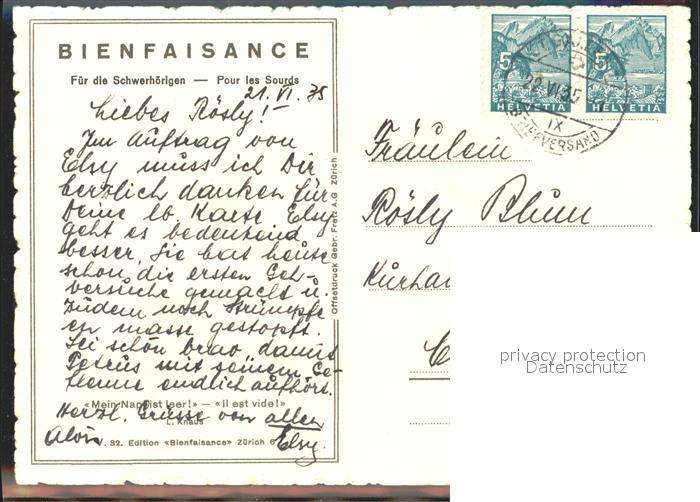 BIENFAISANCE
Für die Schwerhörigen — Pour les Sourds
21. VI. 35
Liebes Rösly!
Im Auftrag von
Elsy muss ich Dir
herzlich danken für
Deine lb. Karte. Elsy
geht es bedeutend
besser. Sie hat heute
schon die ersten Geh-
versuche gemacht u.
zudem noch Strümpfe
en masse gestopft.
Sei schön brav, damit
Petrus mit seinem Ge-
flenne endlich aufhört.
«Mein Napf ist leer!» — «Il est vide!»
L. Knaus
Herzl. Grüsse von allen
Alois Elsy.
V. 32. Edition «Bienfaisance» Zürich 6
Offsetdruck Gebr. Fretz A.G. Zürich
5 5
HELVETIA HELVETIA
VI. 35
IX
BRIEFVERSAND
Fräulein
Rösly Blum
Kurhau
privacy protection
Datenschutz